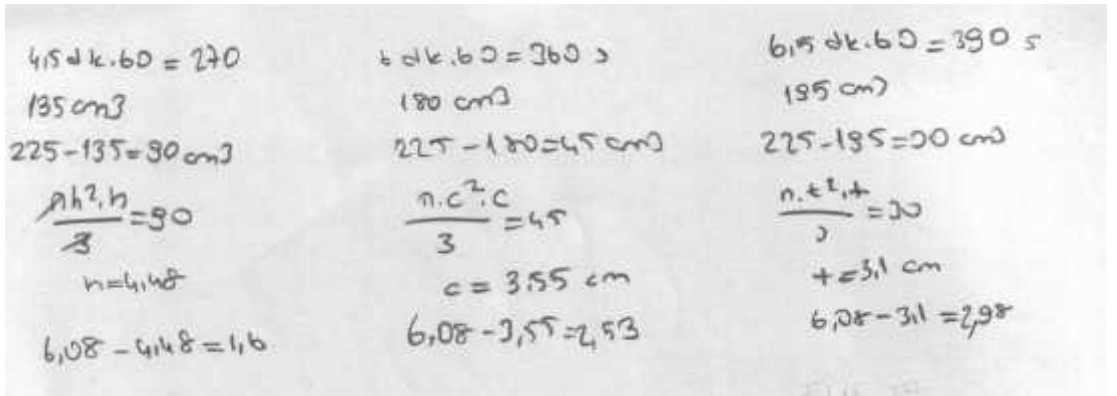 4,5 dk.60 = 270
135 cm3
225-135=90 cm3
πh².h/3=90
h=4,48
6,08-4,48=1,6
6 dk.60=360 s
180 cm3
225-180=45 cm3
π.c².c/3=45
c= 3,55 cm
6,08-3,55=2,53
6,5 dk.60=390 s
195 cm3
225-195=30 cm3
π.t².t/3=30
t=3,1 cm
6,08-3,1=2,98